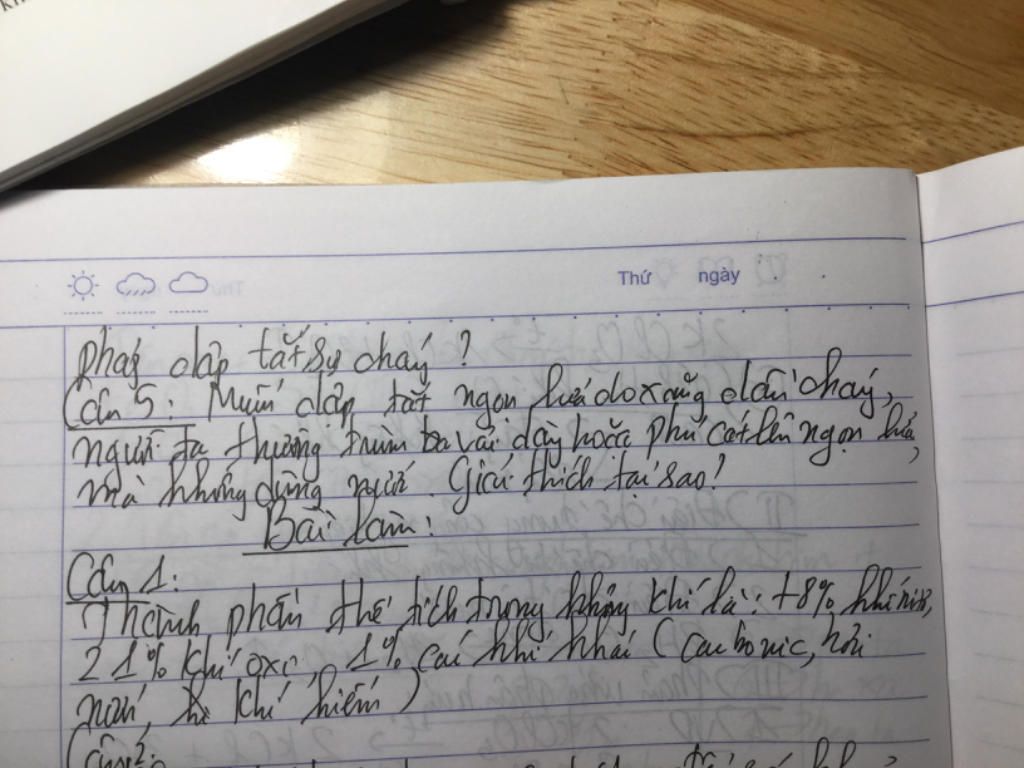 Thứ ngày
pháp dập tắt sự cháy?
Câu 5: Muốn dập tắt ngọn lửa do xăng dầu cháy,
người ta thường trùm ba vải dày hoặc phủ cát lên ngọn lửa,
mà không dùng nước. Giải thích tại sao?
Bài làm:
Câu 1:
Thành phần thể tích trong không khí là: 78% khí nitơ,
21% khí oxi, 1% các khí khác (Cacbonic, hơi
nước, khí hiếm)
Câu 2: